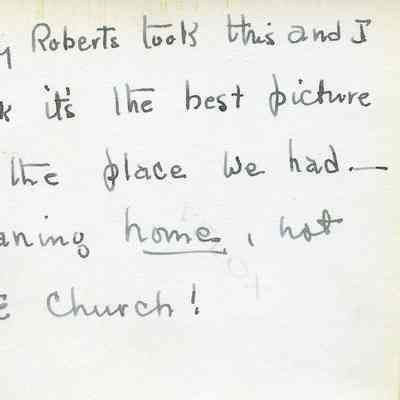 Roberts took this and I
it's the best picture
the place we had. —
home, not
church!